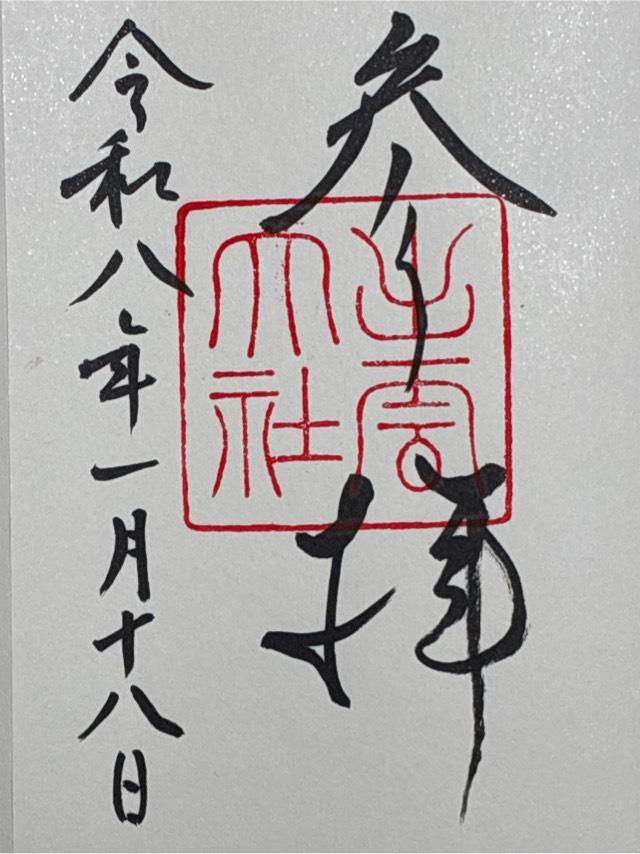 参拝
出雲
大社
令和八年一月十八日